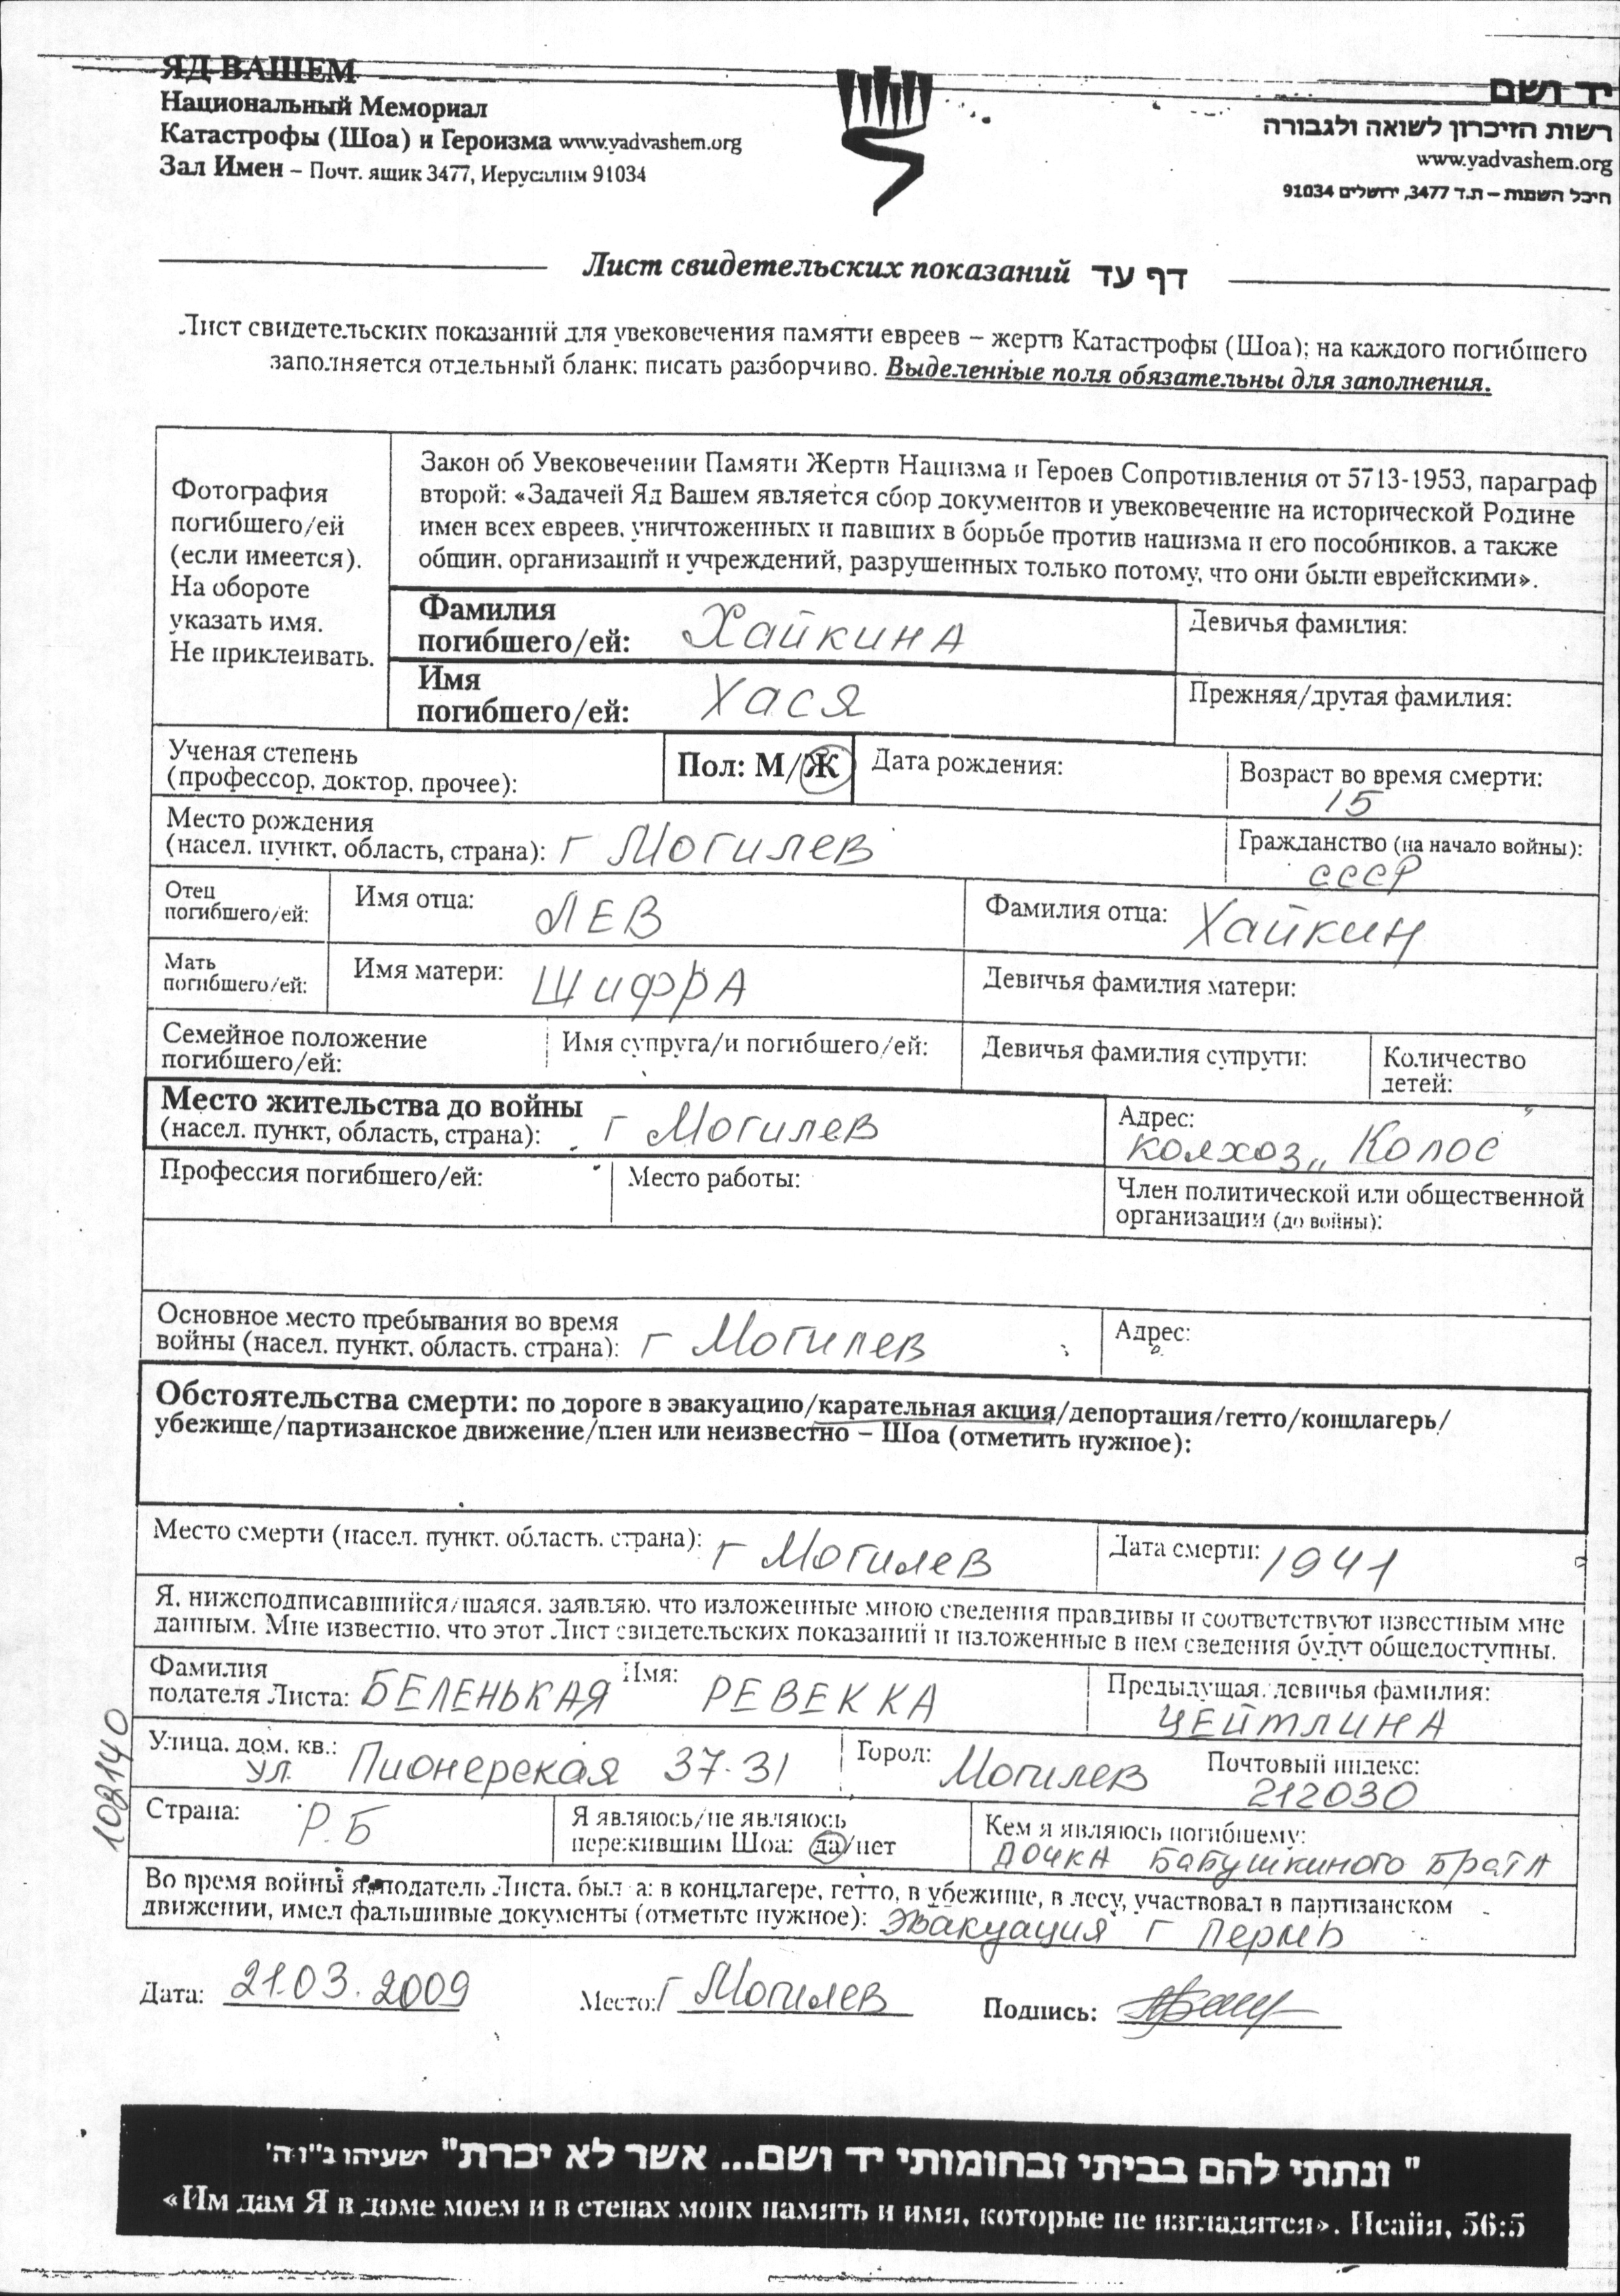 ЯД ВАШЕМ
Национальный Мемориал
Катастрофы (Шоа) и Героизма www.yadvashem.org
Зал Имен – Почт. ящик 3477, Иерусалим 91034
יד ושם
רשות הזיכרון לשואה ולגבורה
www.yadvashem.org
היכל השמות – ת.ד 3477, ירושלים 91034
Лист свидетельских показаний דף עד
Лист свидетельских показаний для увековечения памяти евреев – жертв Катастрофы (Шоа); на каждого погибшего
заполняется отдельный бланк; писать разборчиво. Выделенные поля обязательны для заполнения.
Фотография
погибшего/ей
(если имеется).
На обороте
указать имя.
Не приклеивать.
Закон об Увековечении Памяти Жертв Нацизма и Героев Сопротивления от 5713-1953, параграф
второй: «Задачей Яд Вашем является сбор документов и увековечение на исторической Родине
имен всех евреев, уничтоженных и павших в борьбе против нацизма и его пособников, а также
общин, организаций и учреждений, разрушенных только потому, что они были еврейскими».
Фамилия
погибшего/ей: Хайкина
Девичья фамилия:
Имя
погибшего/ей: Хася
Прежняя/другая фамилия:
Ученая степень
(профессор, доктор, прочее):
Пол: М/Ж
Дата рождения:
Возраст во время смерти:
15
Место рождения
(насел. пункт, область, страна): г Могилев
Гражданство (на начало войны):
СССР
Отец
погибшего/ей:
Имя отца: ЛЕВ
Фамилия отца: Хайкин
Мать
погибшего/ей:
Имя матери: ШифрА
Девичья фамилия матери:
Семейное положение
погибшего/ей:
Имя супруга/и погибшего/ей:
Девичья фамилия супруги:
Количество
детей:
Место жительства до войны
(насел. пункт, область, страна): г Могилев
Адрес:
колхоз „ Колос "
Профессия погибшего/ей:
Место работы:
Член политической или общественной
организации (до войны):
Основное место пребывания во время
войны (насел. пункт, область, страна): г Могилев
Адрес:
Обстоятельства смерти: по дороге в эвакуацию/карательная акция/депортация/гетто/концлагерь/
убежище/партизанское движение/плен или неизвестно – Шоа (отметить нужное):
Место смерти (насел. пункт, область, страна): г Могилев
Дата смерти: 1941
Я, нижеподписавшийся/шаяся, заявляю, что изложенные мною сведения правдивы и соответствуют известным мне
данным. Мне известно, что этот Лист свидетельских показаний и изложенные в нем сведения будут общедоступны.
Фамилия
подателя Листа: БЕЛЕНЬКАЯ Имя: РЕВЕККА
Предыдущая, девичья фамилия:
ЦЕЙТЛИНА
Улица, дом, кв.:
ул. Пионерская 37-31
Город: Могилев
Почтовый индекс:
212030
Страна: Р.Б
Я являюсь/не являюсь
пережившим Шоа: да/нет
Кем я являюсь погибшему:
ДОЧКА БАБУШКИНОГО БРАТА
Во время войны я, податель Листа, был а: в концлагере, гетто, в убежище, в лесу, участвовал в партизанском
движении, имел фальшивые документы (отметьте нужное): Эвакуация г Пермь
Дата: 21.03.2009
Место: г Могилев
Подпись:
102140
" ונתתי להם בביתי ובחומותי יד ושם... אשר לא יכרת" ישעיהו נ"ו ה'
«Им дам Я в доме моем и в стенах моих память и имя, которые не изгладятся». Исайя, 56:5